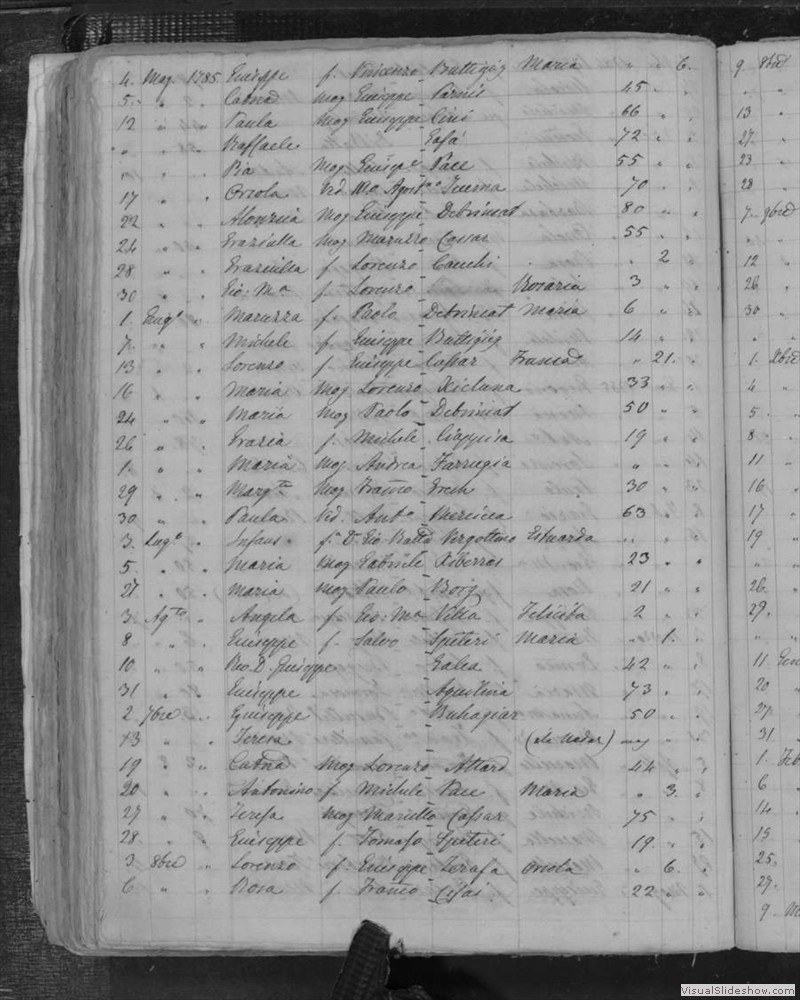 4. Mag 1785 Giuseppe f. Vincenzo Buttigieg Maria " " 6.
5. " " Catna mog Giuseppe Parnis 45 " "
12 " " Paula mog Giuseppe Cini 66 " "
" " " Raffaele Gafà 72 " "
" " " Pia mog Giuspe Pace 55 " "
17 " " Orsola Ved 70 " "
22 " " Aloysia mog Giuseppe Debrincat 80 " "
24 " " Graziulla mog Maruzzo Cassar 55 " "
28 " " Graziulla f. Lorenzo Cauchi " 2 "
30 " " Gio: Ma f. Lorenzo Rosaria 3 " "
1. Giugo " Maruzza f. Paolo Debrincat Maria 6 " "
7. " " Michele f. Giuseppe Buttigieg 14 " "
13 " " Lorenzo f. Giuseppe Cassar Franca " 21. "
16 " " Maria mog Lorenzo Xicluna 33 " "
24 " " Maria mog Paolo Debrincat 50 " "
26 " " Grazia f. Michele 19 " "
1. " " Maria mog Andrea Farrugia " " "
29 " " Margta mog Franco Grech 30 " "
30 " " Paula Ved. Anto Mercieca 63 " "
3. Lugo " Infans f. Dr Gio Batta Vergottino Eduarda " "
5. " " Maria mog Gabriele Xiberras 23 " "
27. " " Maria mog Paulo Borg 21 " "
3. Agto " Angela f. Gio: Ma Vella Felicita 2 " "
8 " " Giuseppe f. Salvo Spiteri Maria " 1. "
10. " " Rdo D. Giuseppe Galea 42 " "
31 " " Giuseppe Agustina 73 " "
2. 7bre " Giuseppe Buhagiar 50 " "
13 " " Teresa (da Nadar)
19 " " Catna mog Lorenzo Attard 44 " "
20 " " Antonino f. Michele Pace Maria " 3. "
27 " " Teresa mog Cassar 75 " "
28. " " Giuseppe f. Tomaso Spiteri 19 " "
3. 8bre " Lorenzo f. Giuseppe Orsola " 6. "
6 " " Rosa f. Franco 22 " "
9. 8bre
" "
13 "
27. "
23 "
28 "
7. 9bre
" "
12 "
26. "
30 "
" "
1. Xbre
4 "
5. "
8 "
11 "
16 "
17 "
19 "
" "
26. "
29. "
" "
11 Gen
20 "
27. "
31 "
1. Feb
6 "
14 "
15 "
25. "
29. "
9. M
VisualSlideshow.com